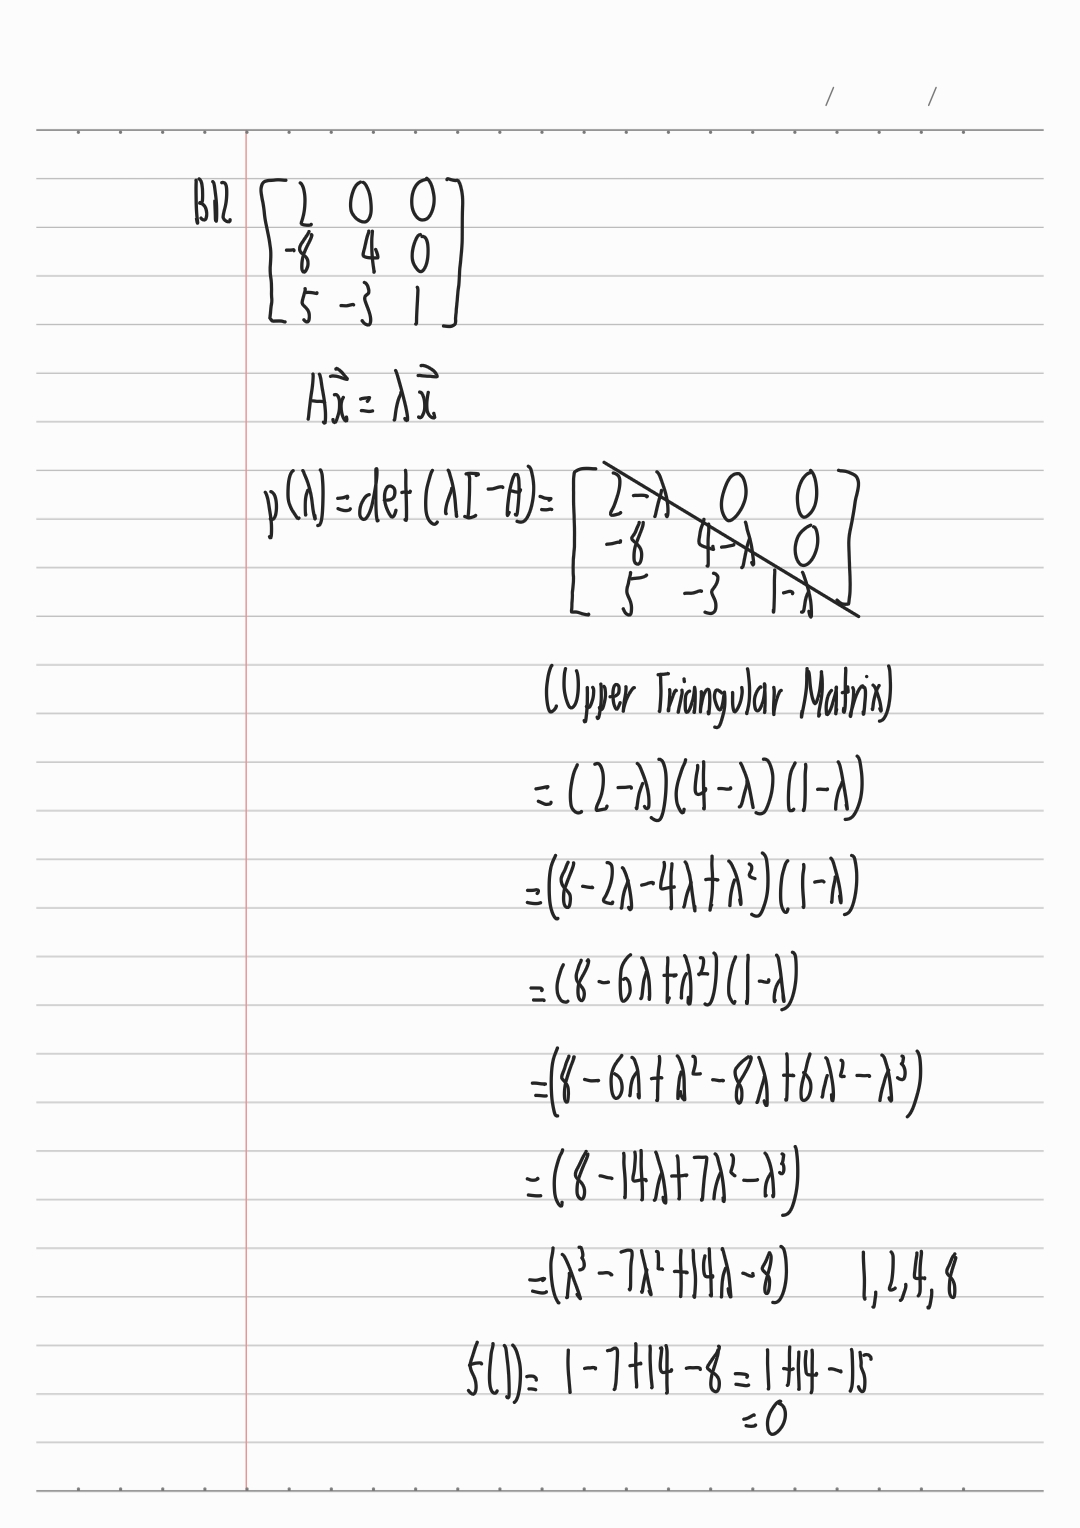 / /
B12 [2 0 0
-8 4 0
5 -3 1]
Ax⃗ = λx⃗
p(λ) = det(λI - A) = [2-λ 0 0
-8 4-λ 0
5 -3 1-λ]
(Upper Triangular Matrix)
= (2-λ)(4-λ)(1-λ)
= (8-2λ-4λ+λ²)(1-λ)
= (8-6λ+λ²)(1-λ)
= (8-6λ+λ²-8λ+6λ²-λ³)
= (8-14λ+7λ²-λ³)
= (λ³-7λ²+14λ-8) 1, 2, 4, 8
f(1) = 1-7+14-8 = 1+14-15
= 0